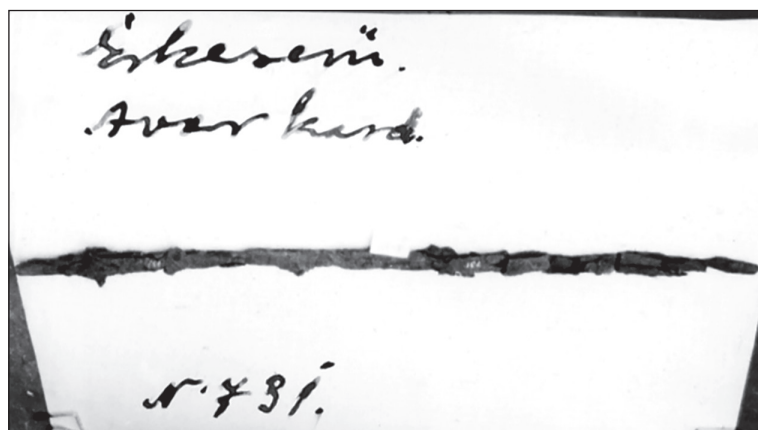 Érkeserü.
Avar kard.
N. 731.